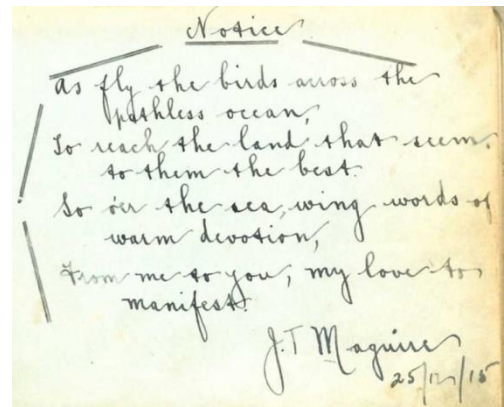 Notice
As fly the birds across the
pathless ocean,
To reach the land that seem
to them the best.
So o'er the sea, wing words of
warm devotion,
From me to you, my love to
manifest.
J. T Maguire
25/12/15